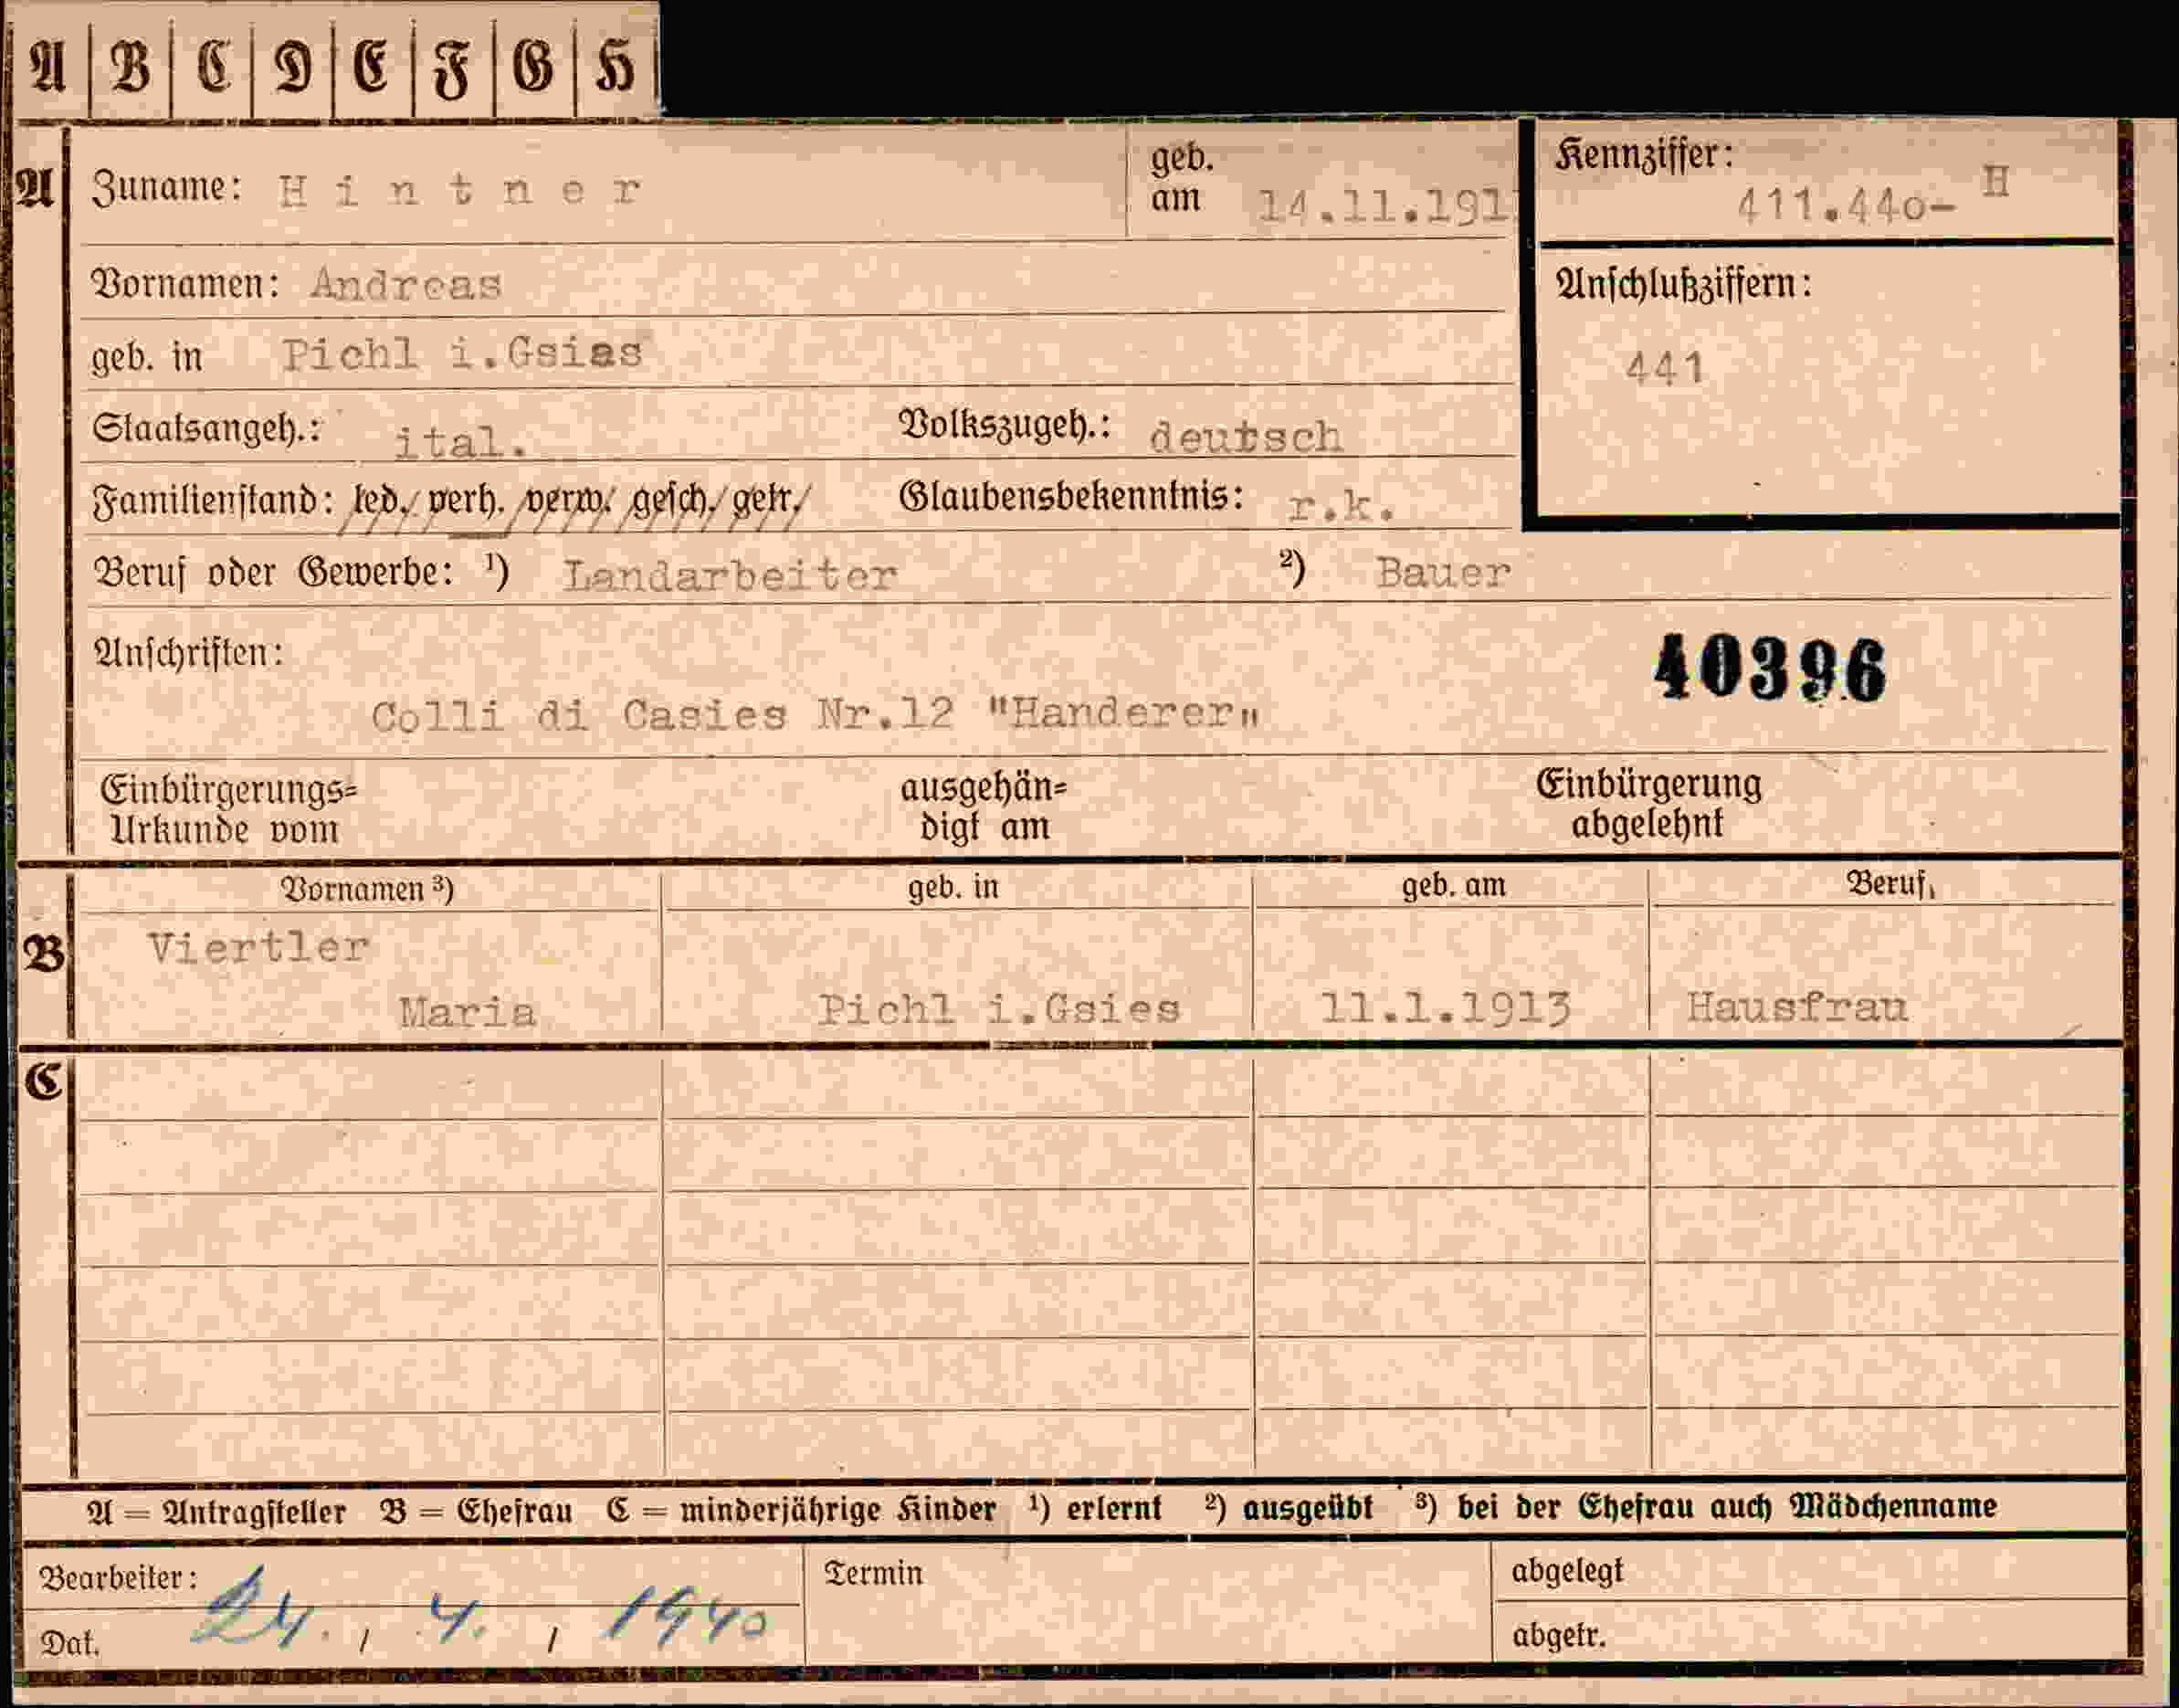 A B C D E F G H
A Zuname: Hintner geb. am 14.11.191
Kennziffer: 411.44o- H
Vornamen: Andreas
Anschlußziffern:
geb. in Pichl i.Gsias
441
Staatsangeh.: ital. Volkszugeh.: deutsch
Familienstand: led./ verh. /verw./ gesch./ getr./ Glaubensbekenntnis: r.k.
Beruf oder Gewerbe: ¹) Landarbeiter ²) Bauer
Anschriften: 40396
Colli di Casies Nr.12 "Handerer"
Einbürgerungs= ausgehän= Einbürgerung
Urkunde vom digt am abgelehnt
Vornamen ³) geb. in geb. am Beruf
B Viertler
Maria Pichl i.Gsies 11.1.1913 Hausfrau
C
A = Antragsteller B = Ehefrau C = minderjährige Kinder ¹) erlernt ²) ausgeübt ³) bei der Ehefrau auch Mädchenname
Bearbeiter: Termin abgelegt
Dat. 24. / 4. / 1940 abgetr.